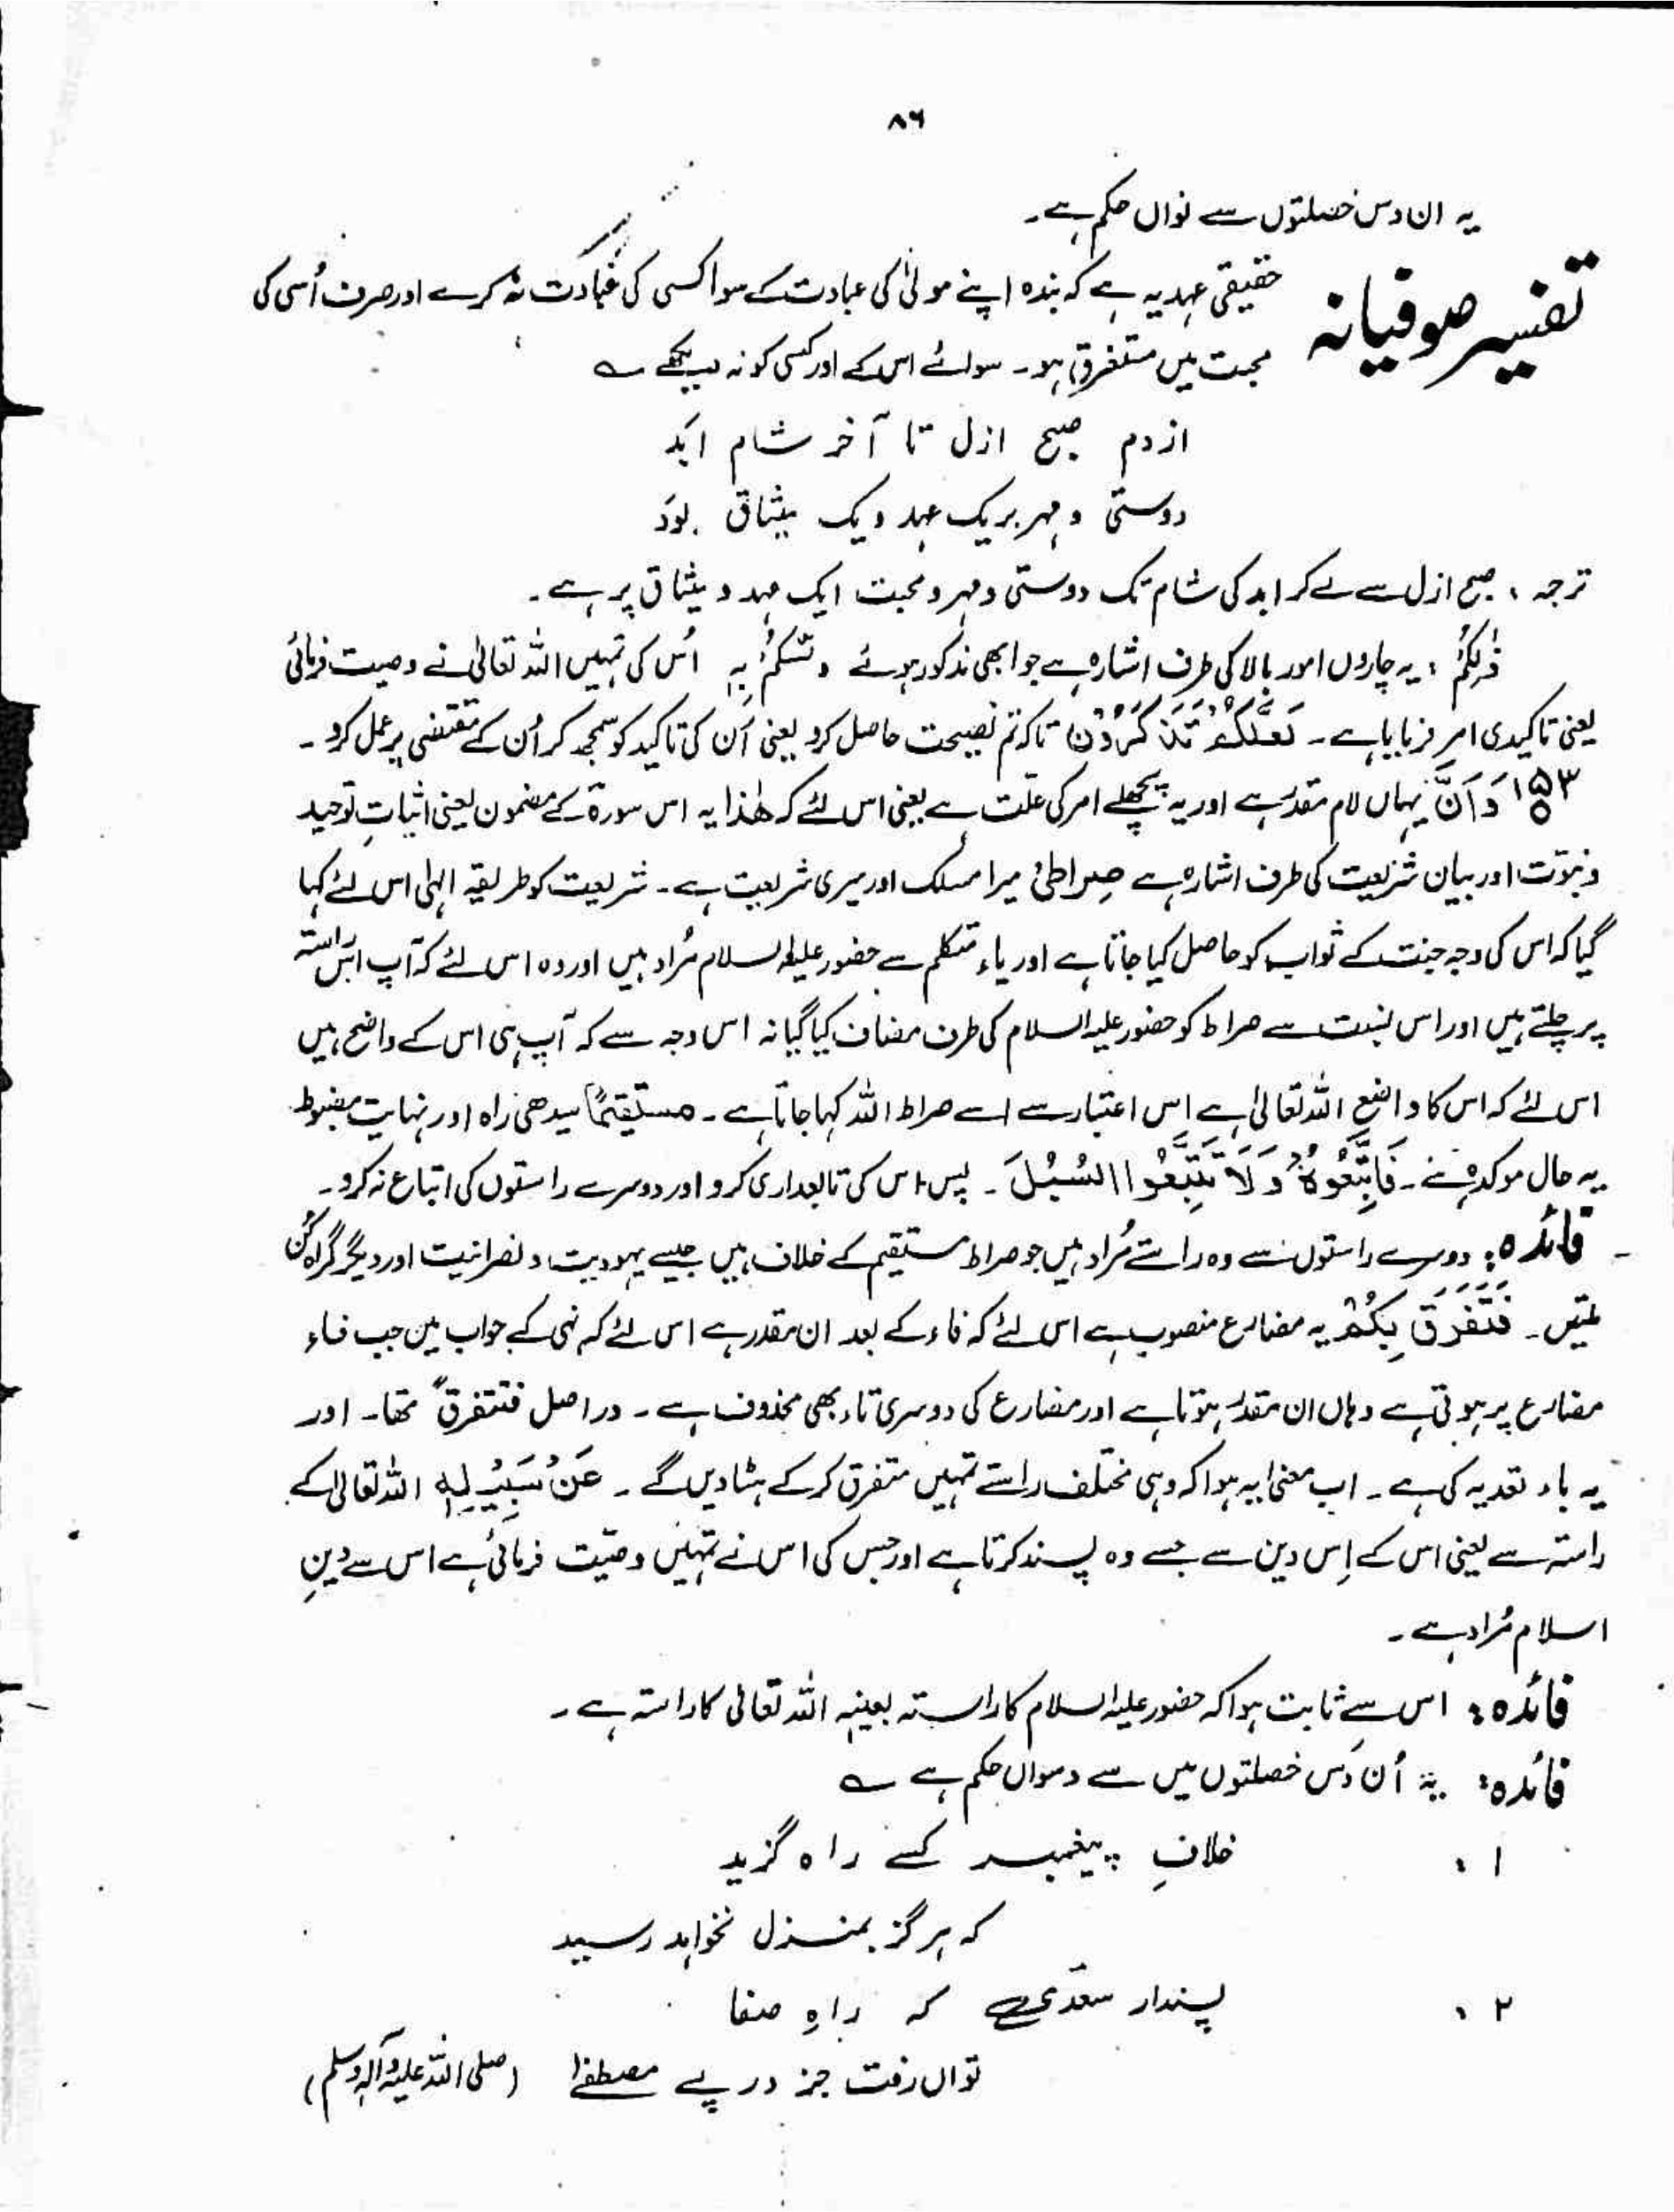 ۸۶
یہ ان دس خصلتوں سے نواں حکم ہے۔
تفسیر صوفیانہ
حقیقی عہد یہ ہے کہ بندہ اپنے مولیٰ کی عبادت کے سوا کسی کی عبادت نہ کرے اور صرف اُسی کی
محبت میں مستغرق ہو۔ سوائے اس کے اور کسی کو نہ دیکھے ؎
از دم صبح ازل تا آخر شام ابَد
دوستی و مہر بریک عہد و یک میثاق بوَد
ترجمہ: صبح ازل سے لے کر ابد کی شام تک دوستی و مہر و محبت ایک عہد و میثاق پر ہے۔
ذٰلِکُمْ: یہ چاروں امور بالا کی طرف اشارہ ہے جو ابھی مذکور ہوئے وصّٰکُمْ بِہٖ اُس کی تمہیں اللہ تعالیٰ نے وصیت فرمائی
یعنی تاکیدی امر فرمایا ہے۔ لَعَلَّکُمْ تَذَکَّرُوْنَ تاکہ تم نصیحت حاصل کرو یعنی اُن کی تاکید کو سمجھ کر اُن کے مقتضیٰ پر عمل کرو۔
۱۵۳ وَاَنَّ یہاں لام مقدر ہے اور یہ پچھلے امر کی علّت ہے یعنی اس لئے کہ ھٰذا یہ اس سورۃ کے مضمون یعنی اثباتِ توحید
و نبوّت اور بیان شریعت کی طرف اشارہ ہے صِراطیْ میرا مسلک اور میری شریعت ہے۔ شریعت کو طریقہ الہٰی اس لئے کہا
گیا کہ اس کی وجہ جنت کے ثواب کو حاصل کیا جاتا ہے اور یاء متکلم سے حضور علیہ السلام مُراد ہیں اور وہ اس لئے کہ آپ اس راستہ
پر چلتے ہیں اور اس نسبت سے صراط کو حضور علیہ السلام کی طرف مضاف کیا گیا نہ اس وجہ سے کہ آپ ہی اس کے واضح ہیں
اس لئے کہ اس کا واضع اللہ تعالیٰ ہے اس اعتبار سے اسے صراط اللہ کہا جاتا ہے۔ مستقیمًا سیدھی راہ اور نہایت مضبوط
یہ حال موکدہ ہے۔ فَاتَّبِعُوْہُ وَلَا تَتَّبِعُوا السُّبُلَ۔ پس اس کی تابعداری کرو اور دوسرے راستوں کی اتباع نہ کرو۔
فائدہ: دوسرے راستوں سے وہ راستے مُراد ہیں جو صراط مستقیم کے خلاف ہیں جیسے یہودیت و نصرانیت اور دیگر گمراہ کُن
ملتیں۔ فَتَفَرَّقَ بِکُمْ یہ مضارع منصوب ہے اس لئے کہ فاء کے بعد ان مقدر ہے اس لئے کہ نہی کے جواب میں جب فاء
مضارع پر ہوتی ہے وہاں ان مقدر ہوتا ہے اور مضارع کی دوسری تاء بھی محذوف ہے۔ دراصل فتتفرق تھا۔ اور
یہ باء تعدیہ کی ہے۔ اب معنیٰ یہ ہوا کہ وہی مختلف راستے تمہیں متفرق کر کے ہٹا دیں گے۔ عَنْ سَبِیْلِہٖ اللہ تعالیٰ کے
راستہ سے یعنی اس کے اِس دین سے جسے وہ پسند کرتا ہے اور جس کی اس نے تمہیں وصیّت فرمائی ہے اس سے دینِ
اسلام مُراد ہے۔
فائدہ: اس سے ثابت ہوا کہ حضور علیہ السلام کا راستہ بعینہٖ اللہ تعالیٰ کا راستہ ہے۔
فائدہ: یہ اُن دَس خصلتوں میں سے دسواں حکم ہے ؎
۱: خلافِ پیغمبر کسے راہ گزید
کہ ہرگز بمنزل نخواہد رسید
۲: پسندار سعدی کہ راہِ صفا
تواں رفت جز در پے مصطفےٰ (صلی اللہ علیہ وآلہ وسلم)